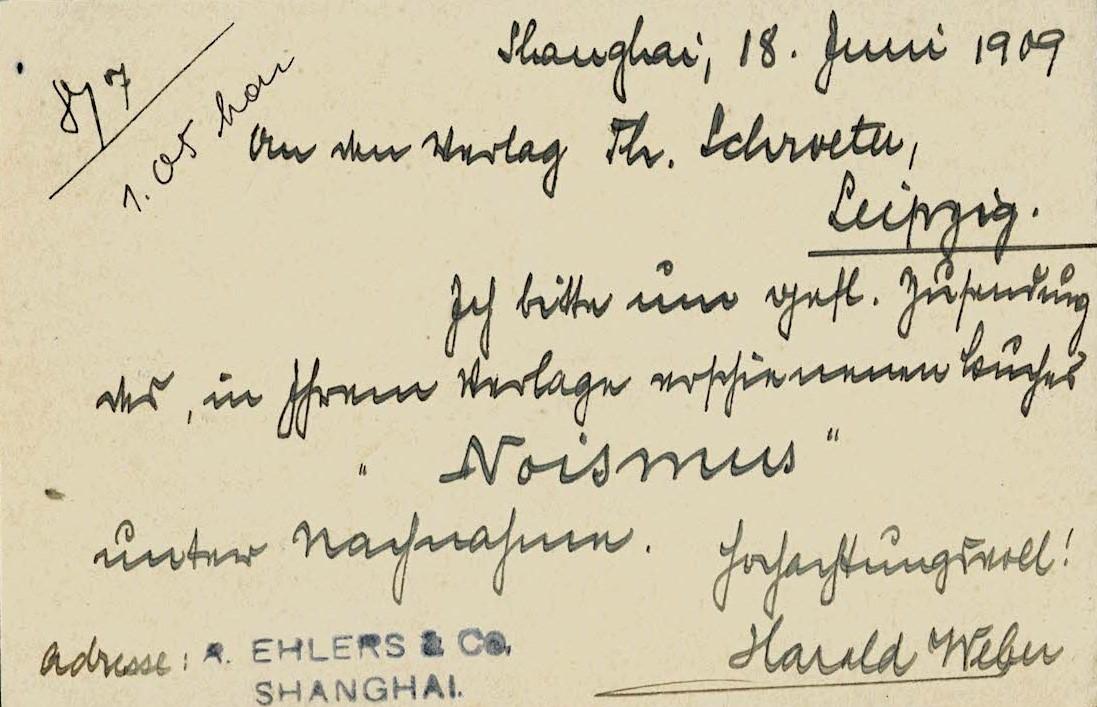 Shanghai, 18. Juni 1909
1.05
An den Verlag Th. Schroeter,
Leipzig.
Ich bitte um gefl. Zusendung
des, in Ihrem Verlage erschienenen Buches
„Noismus“
unter Nachnahme. Hochachtungsvoll!
Adresse: A. EHLERS & Co.
SHANGHAI.
Harald Weber